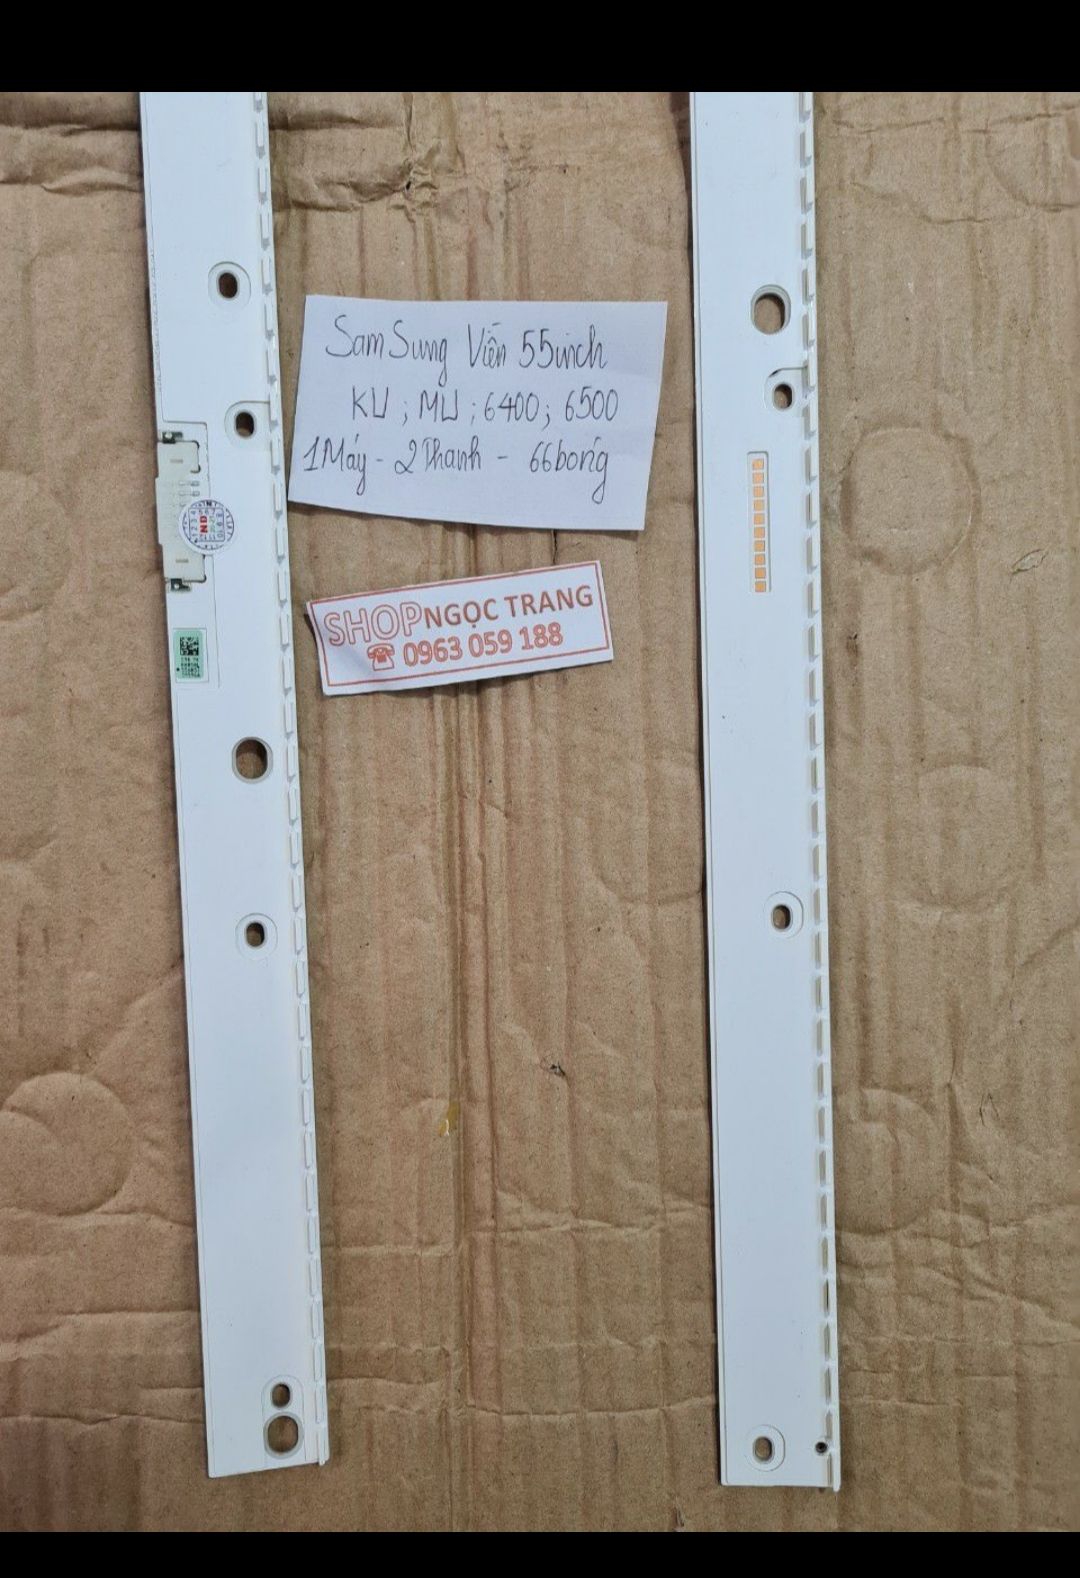 SamSung Viền 55inch
KU ; MU ; 6400 ; 6500
1Máy - 2Thanh - 66bóng
SHOP NGỌC TRANG
☎ 0963 059 188